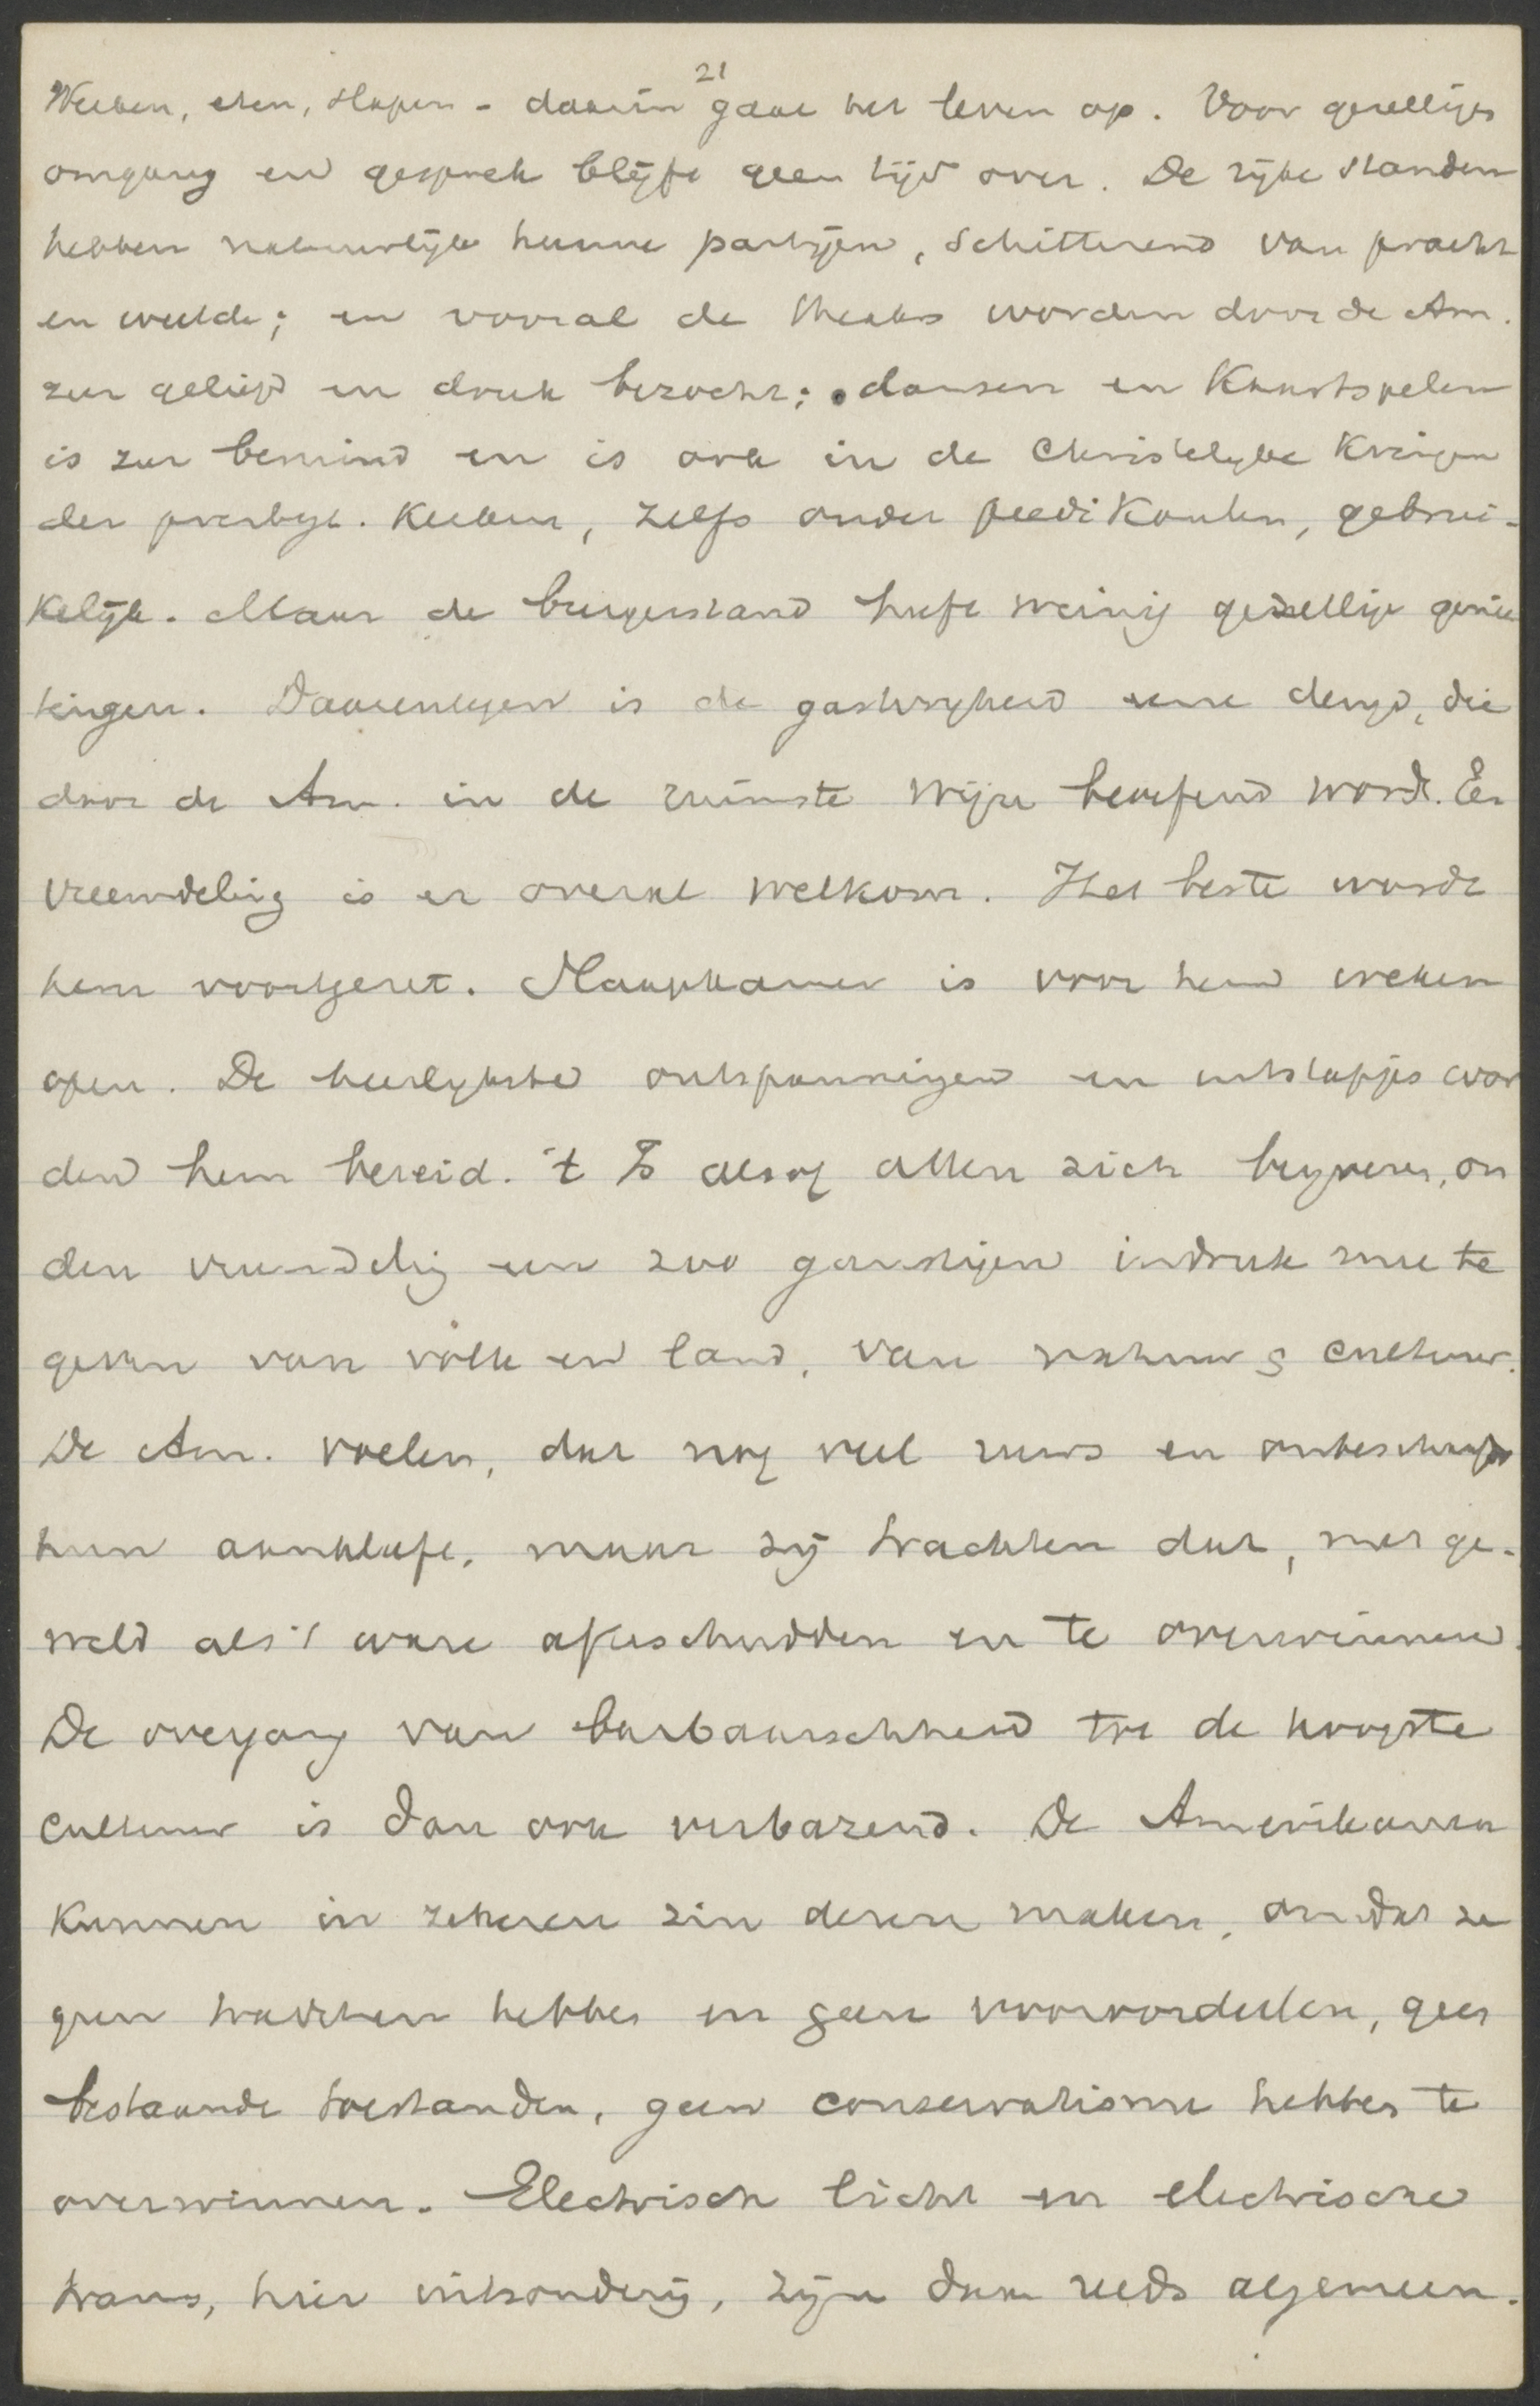 21
Werken, eten, slapen - daarin gaat het leven op. Voor gezelligen
omgang en gesprek blijft geen tijd over. De rijke standen
hebben natuurlijk hunne partijen, schitterend van pracht
en weelde; en vooral de theaters worden door de Am.
zeer geliefd en druk bezocht; dansen en Kaartspelen
is zeer bemind en is ook in de Christelijke Kringen
der presbyt. Kerken, zelfs onder predikanten, gebrui-
kelijk. Maar de burgerstand heeft weinig gezellige genie-
tingen. Daarentegen is de gastvrijheid eene deugd, die
door de Am. in de ruimste wijze beoefend wordt. Een
vreemdeling is er overal welkom. Het beste wordt
hem voorgezet. Slaapkamer is voor hem weken
open. De heerlijkste ontspanningen en uitstapjes wor
den hem bereid. 't Is alsof allen zich beijveren, om
den vreemdeling een zoo gunstigen indruk mee te
geven van volk en land, van natuur & cultuur.
De Am. voelen, dat nog veel ruws en onbeschaafds
hun aankleeft, maar zij trachten dat, met ge-
weld als 't ware af te schudden en te overwinnen.
De overgang van barbaarschheid tot de hoogste
cultuur is dan ook verbazend. De Amerikanen
Kunnen in zekeren zin deren maken, omdat ze
geen tradities hebben en geen vooroordeelen, geen
bestaande toestanden, geen conservatisme hebben te
overwinnen. Electrisch licht en electrische
trams, hier uitzondering, zijn daar reeds algemeen.